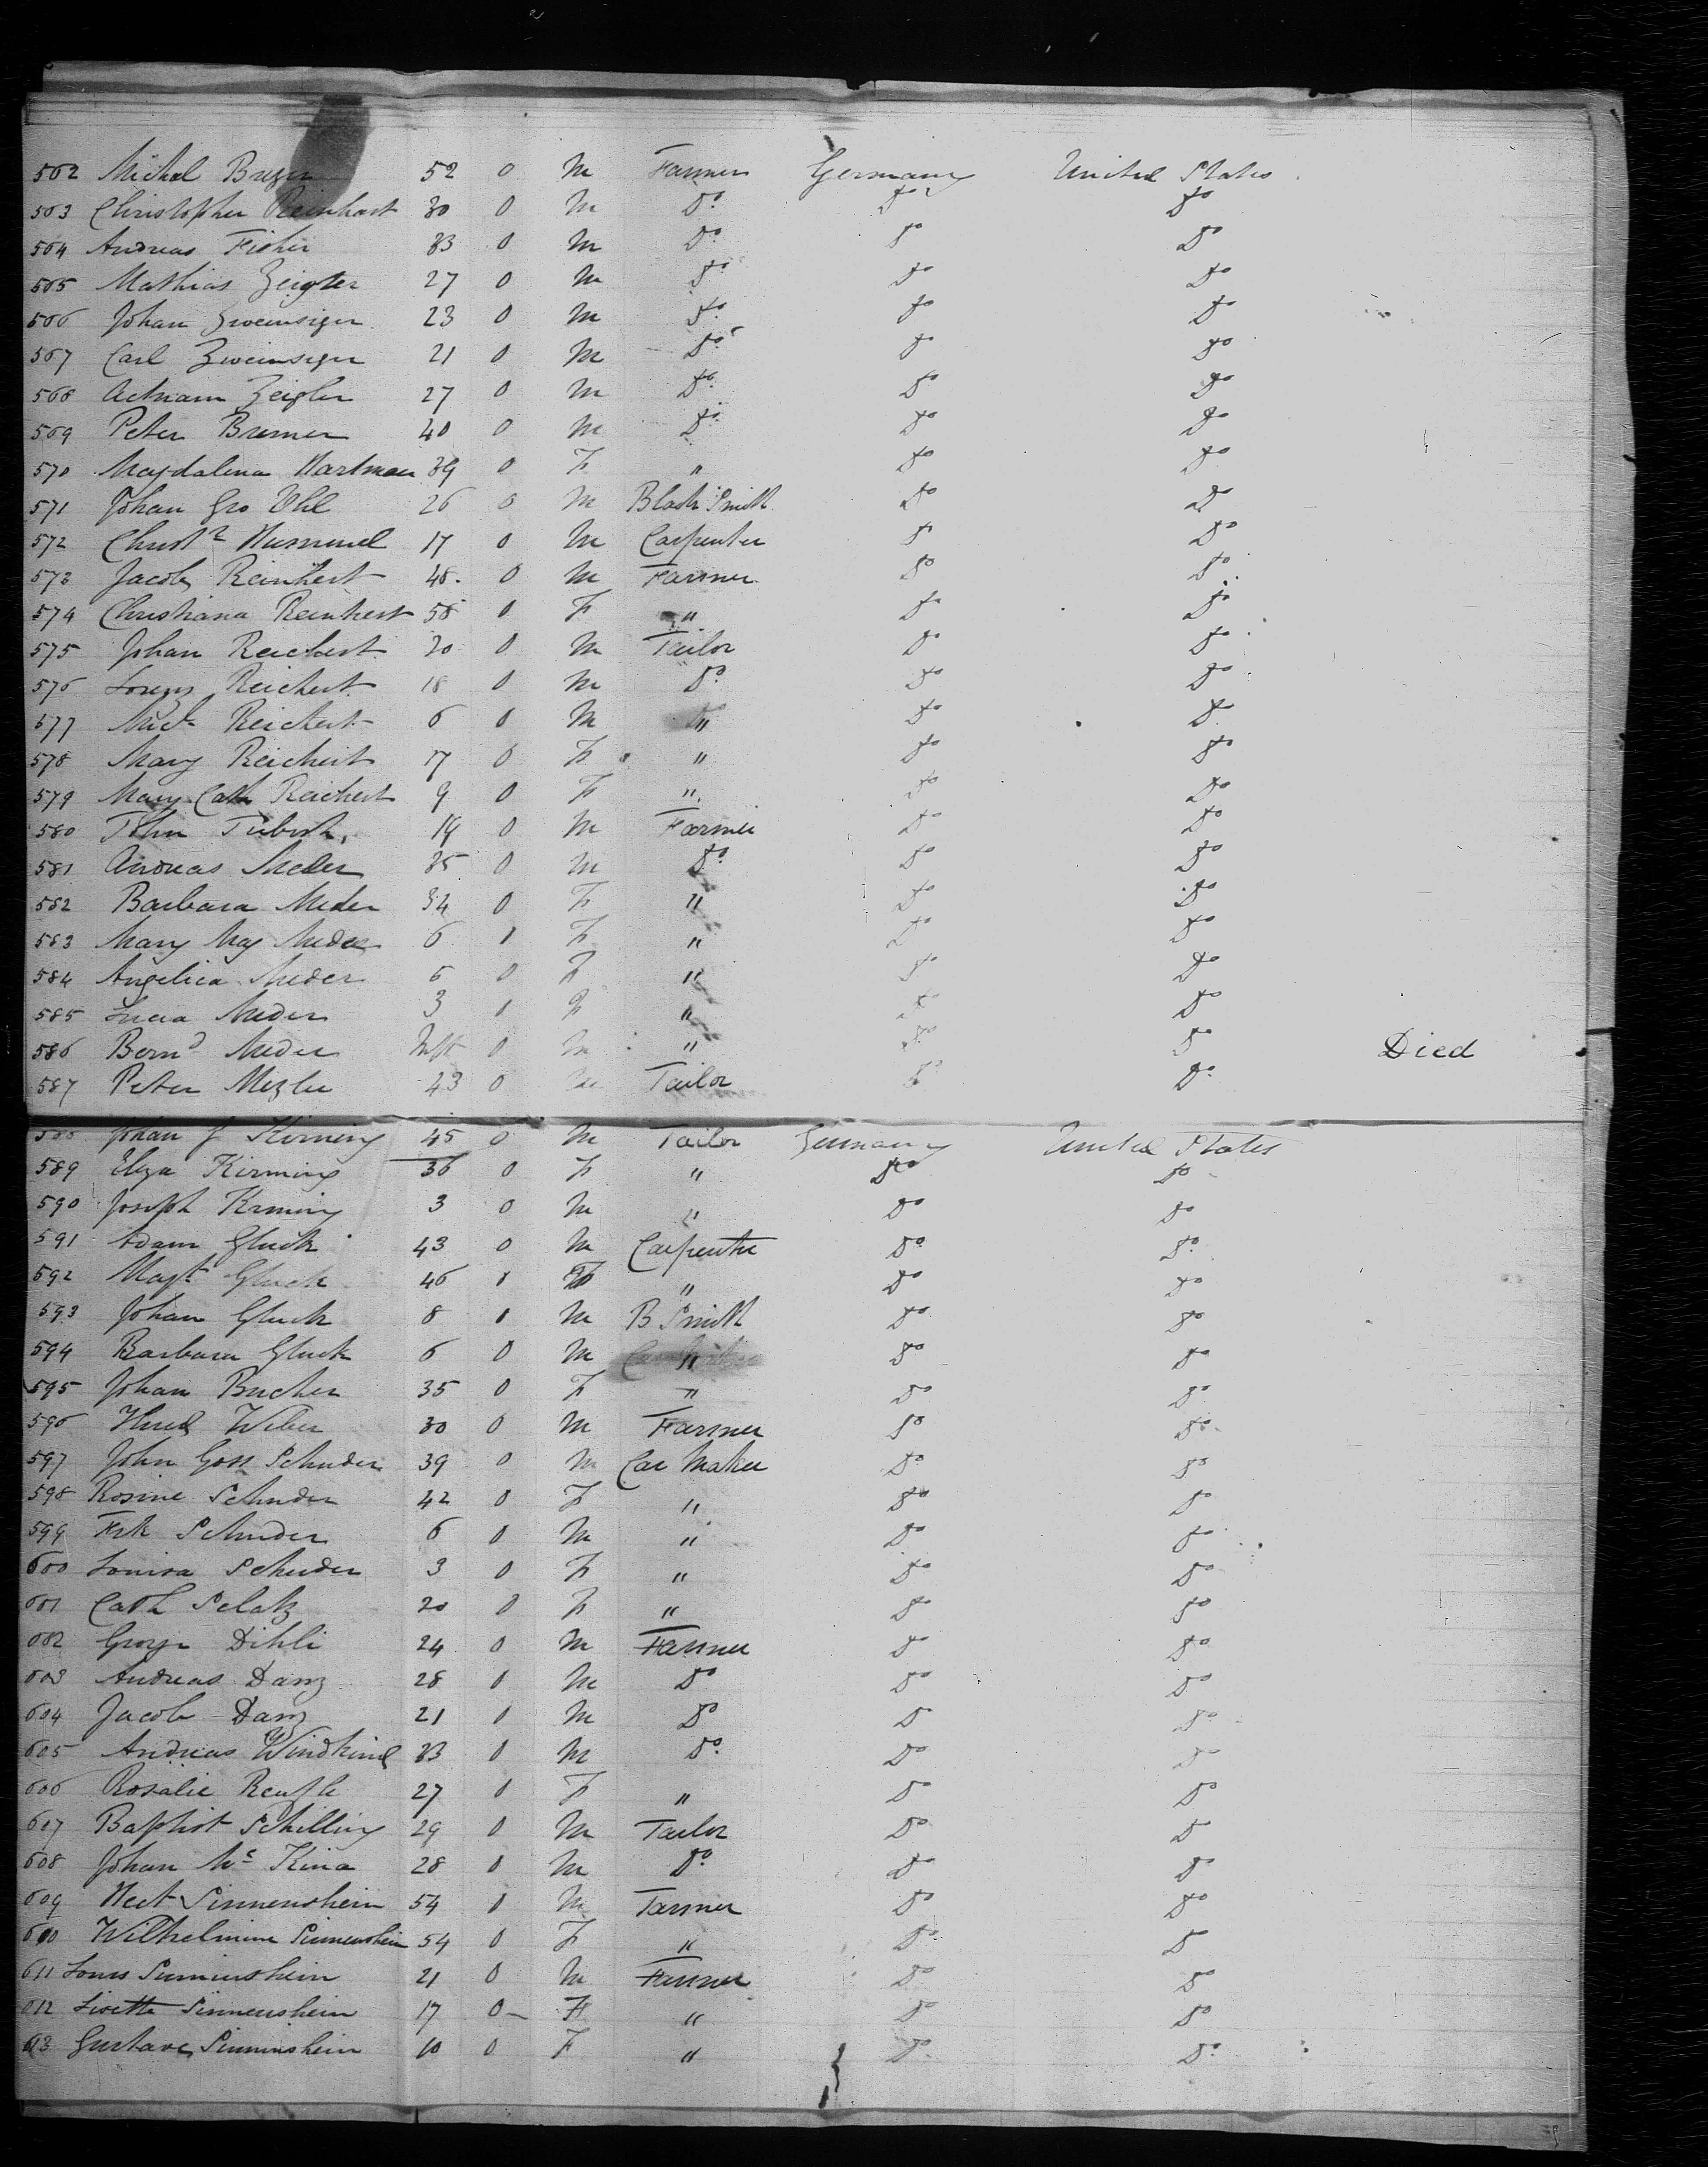 562 Michel 52 0 M Farmer Germany United States
563 Christopher Reinhart 30 0 M Do Do Do
564 Andreas Fisher 33 0 M Do Do Do
565 Mathias Zeigler 27 0 M Do Do Do
566 Johan Zweinsiger 23 0 M Do Do Do
567 Carl Zweinsiger 21 0 M Do Do Do
568 Zeigler 27 0 M Do Do Do
569 Peter Bremer 40 0 M Do Do Do
570 Magdalena Hartman 39 0 F " Do Do
571 Johan Geo Uhl 26 0 M Black Smith Do Do
572 Christn 17 0 M Carpenter Do Do
573 Jacob Reinhert 48 0 M Farmer Do Do
574 Christiana Reinhert 58 0 F " Do Do
575 Johan Reichert 20 0 M Tailor Do Do
576 Lorenz Reichert 18 0 M Do Do Do
577 Mich Reichert 6 0 M " Do Do
578 Mary Reichert 17 0 F " Do Do
579 Mary Cath Reichert 9 0 F " Do Do
580 John 19 0 M Farmer Do Do
581 Andreas Meder 35 0 M Do Do Do
582 Barbara Meder 34 0 F " Do Do
583 Mary Mag Meder 6 0 F " Do Do
584 Angelica Meder 5 0 F " Do Do
585 Lucia Meder 3 0 F " Do Do
586 Bernd Meder Inft 0 M " Do Do Died
587 Peter Mezler 43 0 M Tailor Do Do
588 Johan J Kirming 45 0 M Tailor Germany United States
589 Eliza Kirming 36 0 F " Do Do
590 Joseph Kirming 3 0 M " Do Do
591 Adam Gluck 43 0 M Carpenter Do Do
592 Magt Gluck 46 0 F " Do Do
593 Johan Gluck 8 0 M B Smith Do Do
594 Barbara Gluck 6 0 M " Do Do
595 Johan Bucher 35 0 F " Do Do
596 Weber 30 0 M Farmer Do Do
597 John Goss Schuder 39 0 M Car Maker Do Do
598 Rosine Schuder 42 0 F " Do Do
599 Frk Schuder 6 0 M " Do Do
600 Louisa Schuder 3 0 F " Do Do
601 Cath Selatz 20 0 F " Do Do
602 George Dihli 24 0 M Farmer Do Do
603 Andreas Danz 28 0 M Do Do Do
604 Jacob Danz 21 0 M Do Do Do
605 Andreas Windkind 33 0 M Do Do Do
606 Rosalie 27 0 F " Do Do
607 Baptist Schilling 29 0 M Tailor Do Do
608 Johan Mc Kina 28 0 M Do Do Do
609 Sinnenshein 54 0 M Farmer Do Do
610 Wilhelmine Sinnenshein 54 0 F " Do Do
611 Louis Sinnenshein 21 0 M Farmer Do Do
612 Lisette Sinnenshein 17 0 F " Do Do
613 Gustave Sinnenshein 10 0 F " Do Do